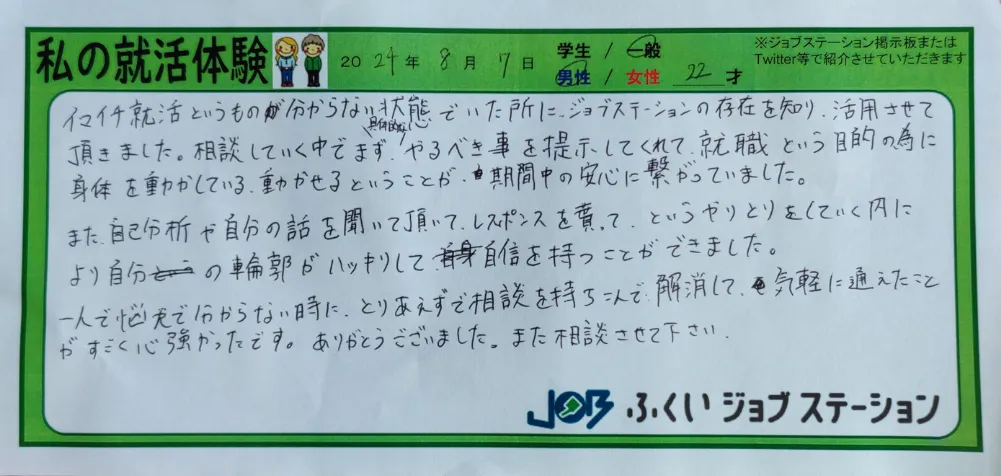 私の就活体験
2024年 8月 7日
学生 / 一般
男性 / 女性 22才
※ジョブステーション掲示板または
Twitter等で紹介させていただきます
イマイチ就活というものが分からない状態でいた所に、ジョブステーションの存在を知り、活用させて
頂きました。相談していく中でまず、具体的なやるべき事を提示してくれて、就職という目的の為に
身体を動かしている、動かせるということが、期間中の安心に繋がっていました。
また、自己分析や自分の話を聞いて頂いて、レスポンスを貰って、というやりとりをしていく内に
より自分の輪郭がハッキリして、自信を持つことができました。
一人で悩んで分からない時に、とりあえずで相談を持ちこんで、解消して、気軽に通えたこと
がすごく心強かったです。ありがとうございました。また相談させて下さい.
JOB ふくいジョブステーション